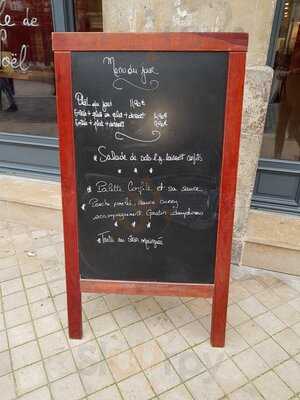 le de
Noël
Menu du jour
Plat du jour 11,90€
Entrée + plat ou plat + dessert
Entrée + plat + dessert
* Salade de
confits
* Palette Confite et sa sauce
* Poisson poché, sauce curry
accompagnement Gratin dauphinois
* Tarte au citron meringuée